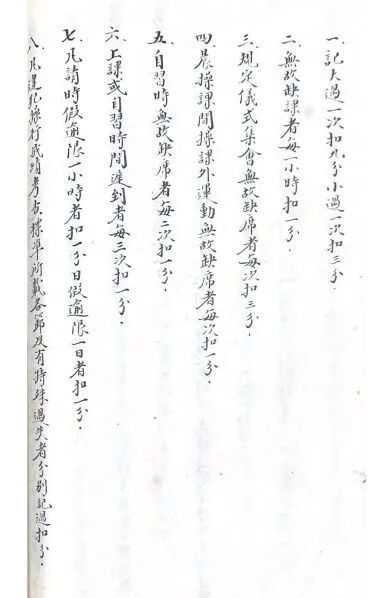 一．記大過一次扣九分小過一次扣三分．
二．無故缺課者每一小時扣一分．
三．規定儀式集會無故缺席者每次扣三分．
四．晨操課間操課外運動無故缺席者每次扣一分．
五．自習時無故缺席者每二次扣一分．
六．上課或自習時間遲到者每三次扣一分．
七．凡請時假逾限一小時者扣一分日假逾限一日者扣一分．
八．凡違犯操行成績考查標準所載各節及有特殊過失者分別記過扣分．